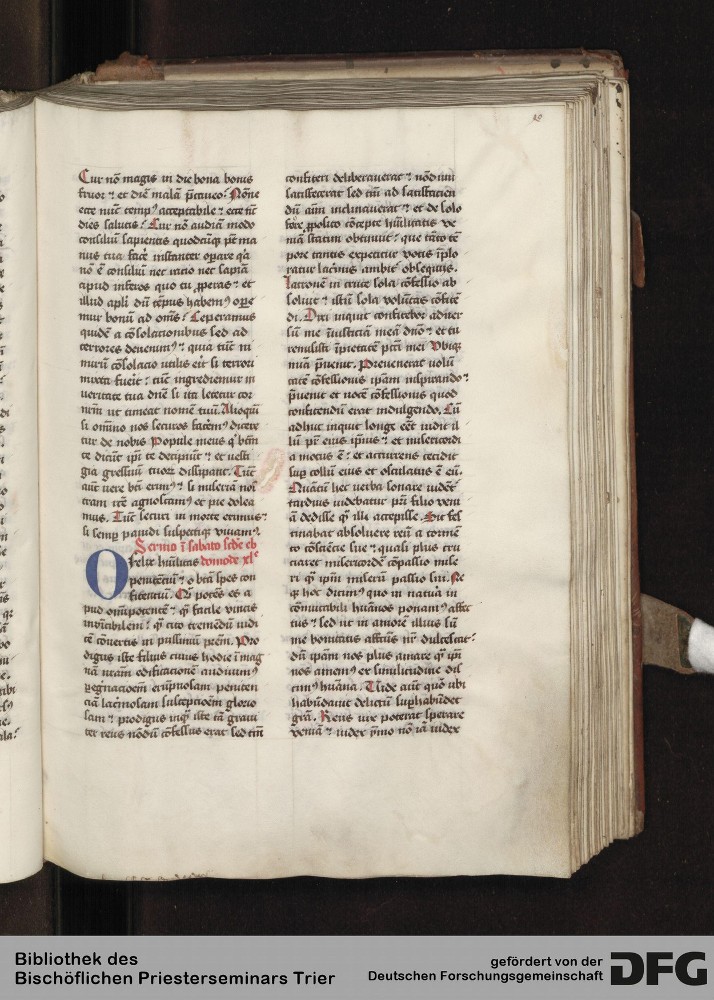 Cur nō magis in die bona bonis
fruor et et diē malā p̄caueo? Nōne
ecce nūc temp⁹ acceptabile et ecce nūc
dies salutis? Cur nō audiā modo
consiliū sapientis quodcūq; pōt ma
nus tua facē instanter opare q̄a
nō ē consiliū nec racio nec sapīa
apud inferos quo tu properas et
illud apli dū tēpus habem⁹ ope
mur bonū ad om̄s? Ceperamus
quidē a cōsolacionibus sed ad
terrores deuenim⁹ et quia tūc ni
mirū cōsolacio utilis erit si terrori
mixta fuerit tūc ingrediemur in
ueritate tua dn̄e si ita letetur cor
nr̄m ut timeat nomē tuū. Alioqūi
si omīno nos securos facim⁹ dicetur
tur de nobis Popule meus q̇ btm̄
te dicūt ip̄i te decipiūt et uesti
gia gressuū tuor̄ dissipant. Tūc
aūt uere bt̄i erim⁹ si miseriā nos
tram ite agnoscam⁹ et pie dolea
mus. Tūc securi in morte erimus
si semp pauidi suspectiq; viuam⁹.
Sermo ī sabato scde eb
O Felix hūilitas domode xl͛
penitenciū o btā spes con
fitenciū. Qr̄ potēs es a
pud omīpotentē q̄ facile vincis
inuīcibilem q̄ cito tremēdū iudi
cē cōuertis in piissimū prēm. Pro
digus iste filius cuius hodie ī mag
nā nr̄am edificacionē audiuim⁹
p̄egnacioēm erūpnosam peniten
ciā lacrimosam suscepcioēm glorio
sam et prodigus inq̄ iste tā graui
ter reus nōdū cōfessus erat sed tm̄
28
confiteri deliberauerat et nōdum
satisfecerat sed tm̄ ad satisfacien
dū aīm inclinauerat et de solo
fere p̄posito cōcepte hūilitatis ve
niā statim obtinuit que tāto tē
pore tantis expetitur votis īplo
ratur lacīmis ambit̄ obsequiis.
Latronē in cruce sola cōfessio ab
soluit et istū sola volūtas cōfitē
di. Dixi inquit confitebor aduer
sū me īiusticiā meā dn̄o et tu
remisisti īpietatē pcti mei Vbiq;
mīa p̄uenit. Preuenerat volū
tatē cōfessionis ipam inspirando
p̄uenit et vocē cōfessionis quod
confitendū erat indulgendo. Cū
adhuc inquit longe eēt uidit il
lū pr̄ eius ip̄ius et misericordi
a motus ē et accurrens cecidit
sup collū eius et osculatus ē eū.
Quātū hec verba sonare uidēt̄
tardius uidebatur prī filio veni
ā dedisse q̄ illi accepisse. Sic fes
tinabat absoluere reū a tormē
to cōsciēcie sue et quasi plus cru
ciaret misericordē cōpassio mise
ri q̄ ip̄m miserū passio sui. Ne
q; hoc dicim⁹ quo in natura in
cōmutabili hūanos ponam⁹ affec
tus et sed ut in amorē illius sū
me bonitatis affcūs nr̄ dulcescat
dū ipam nos plus amare q̄ ip̄i
nos amem⁹ ex similitudine dis
cim⁹ hūana. Vide aūt quō ubi
habūdauit delictū suphabūdet
grā. Reus uix poterat sperare
veniā et iudex ymo nō iā iudex
Bibliothek des
Bischöflichen Priesterseminars Trier
gefördert von der
Deutschen Forschungsgemeinschaft
DFG